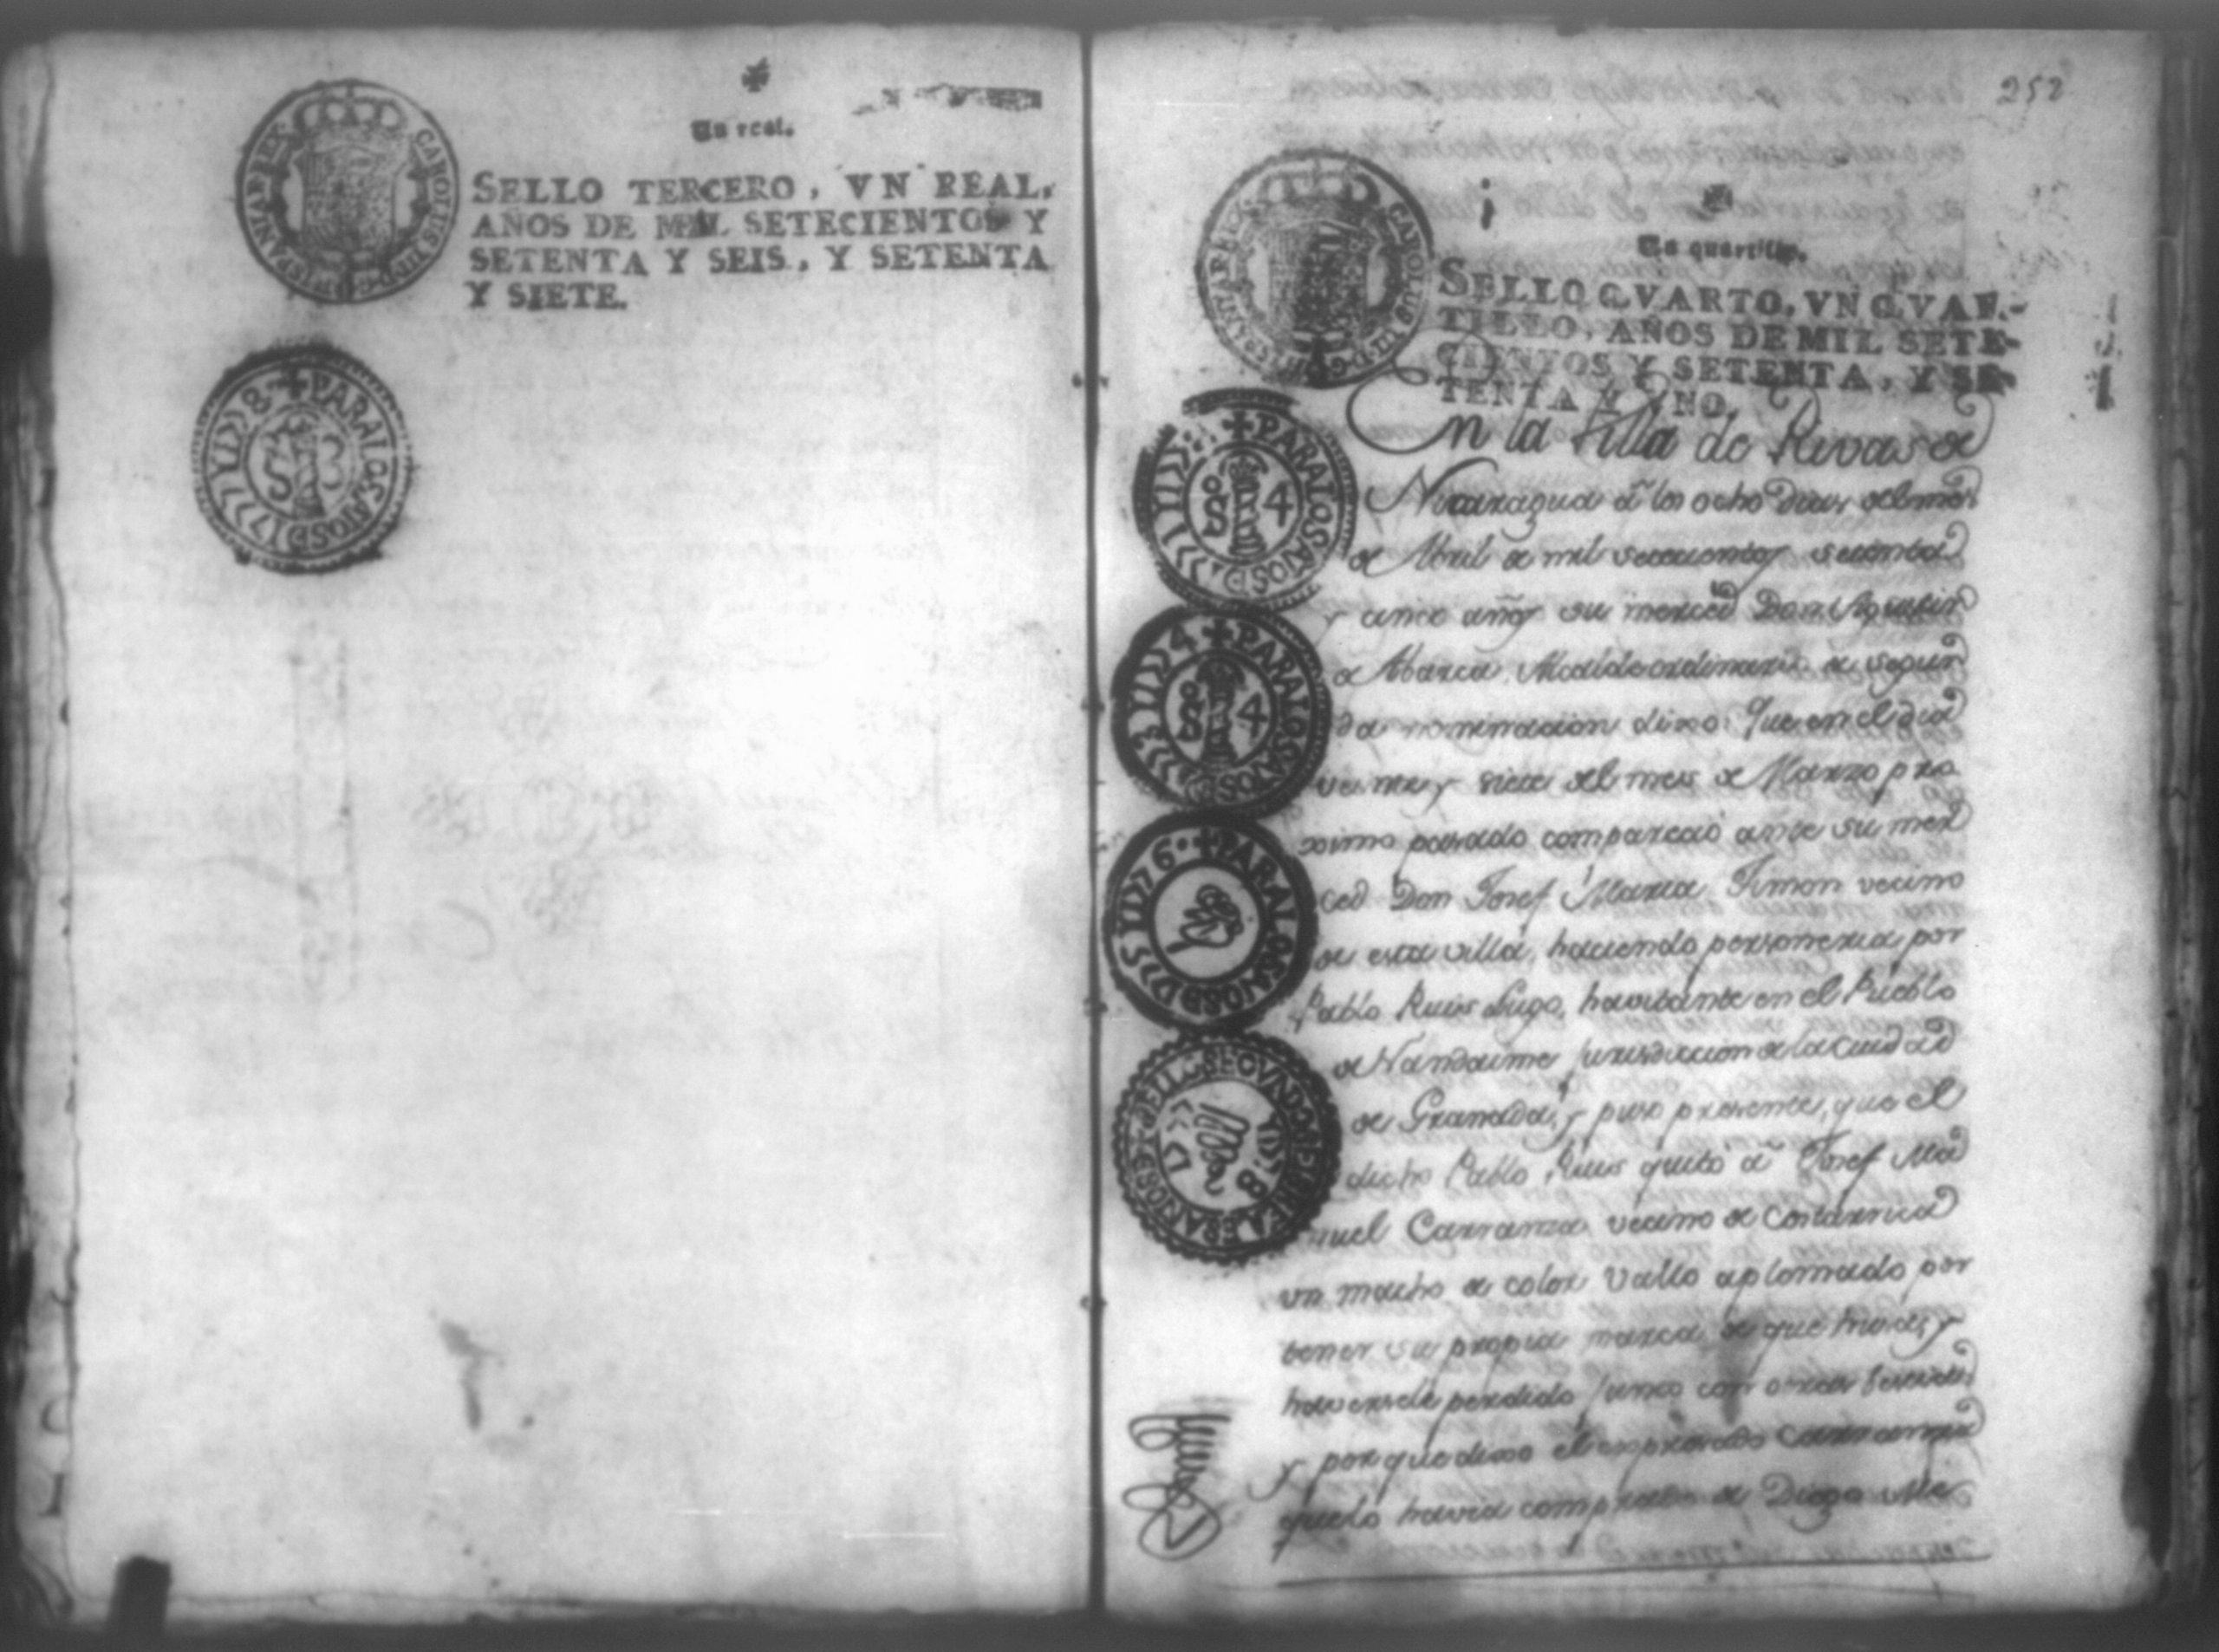 Un real.
SELLO TERCERO, VN REAL,
AÑOS DE MIL SETECIENTOS Y
SETENTA Y SEIS, Y SETENTA
Y SIETE.
CAROLUS III D G HISPANIAR REX
PARA LOS AÑOS D 1777 Y 1778
S 3
252
Un quartillo.
SELLO QVARTO, VN QVAR-
TILLO, AÑOS DE MIL SETE-
CIENTOS Y SETENTA, Y SE-
TENTA Y UNO.
CAROLUS III D G HISPANIAR REX
PARA LOS AÑOS D
So 4
PARA LOS AÑOS D 1773 Y 1774
So 4
PARA LOS AÑOS D 1775 Y 1776
En la Villa de Rivas de
Nicaragua â los ocho dias del mes
de Abril de mil setecientos setenta
y cinco años su merced Don Agustin
de Abarca Alcalde ordinario de segun
da nominacion dixo: Que en el dia
veinte y siete del mes de Marzo pro
ximo pasado compareció ante su mer
ced Don Josef Maria Timon vecino
de esta villa, haciendo personeria por
Pablo Ruis Lugo, havitante en el Pueblo
de Nandaime jurisdiccion de la ciudad
de Granada, y puso presente, que el
dicho Pablo Ruis quitó â Josef Ma
nuel Carranza vecino de Costarrica
un macho de color Vallo aplomado por
tener su propia marca de que husa, y
haversele perdido junto con otras bestias
y porque dixo el expresado Carranza
que lo havia comprado de Diego